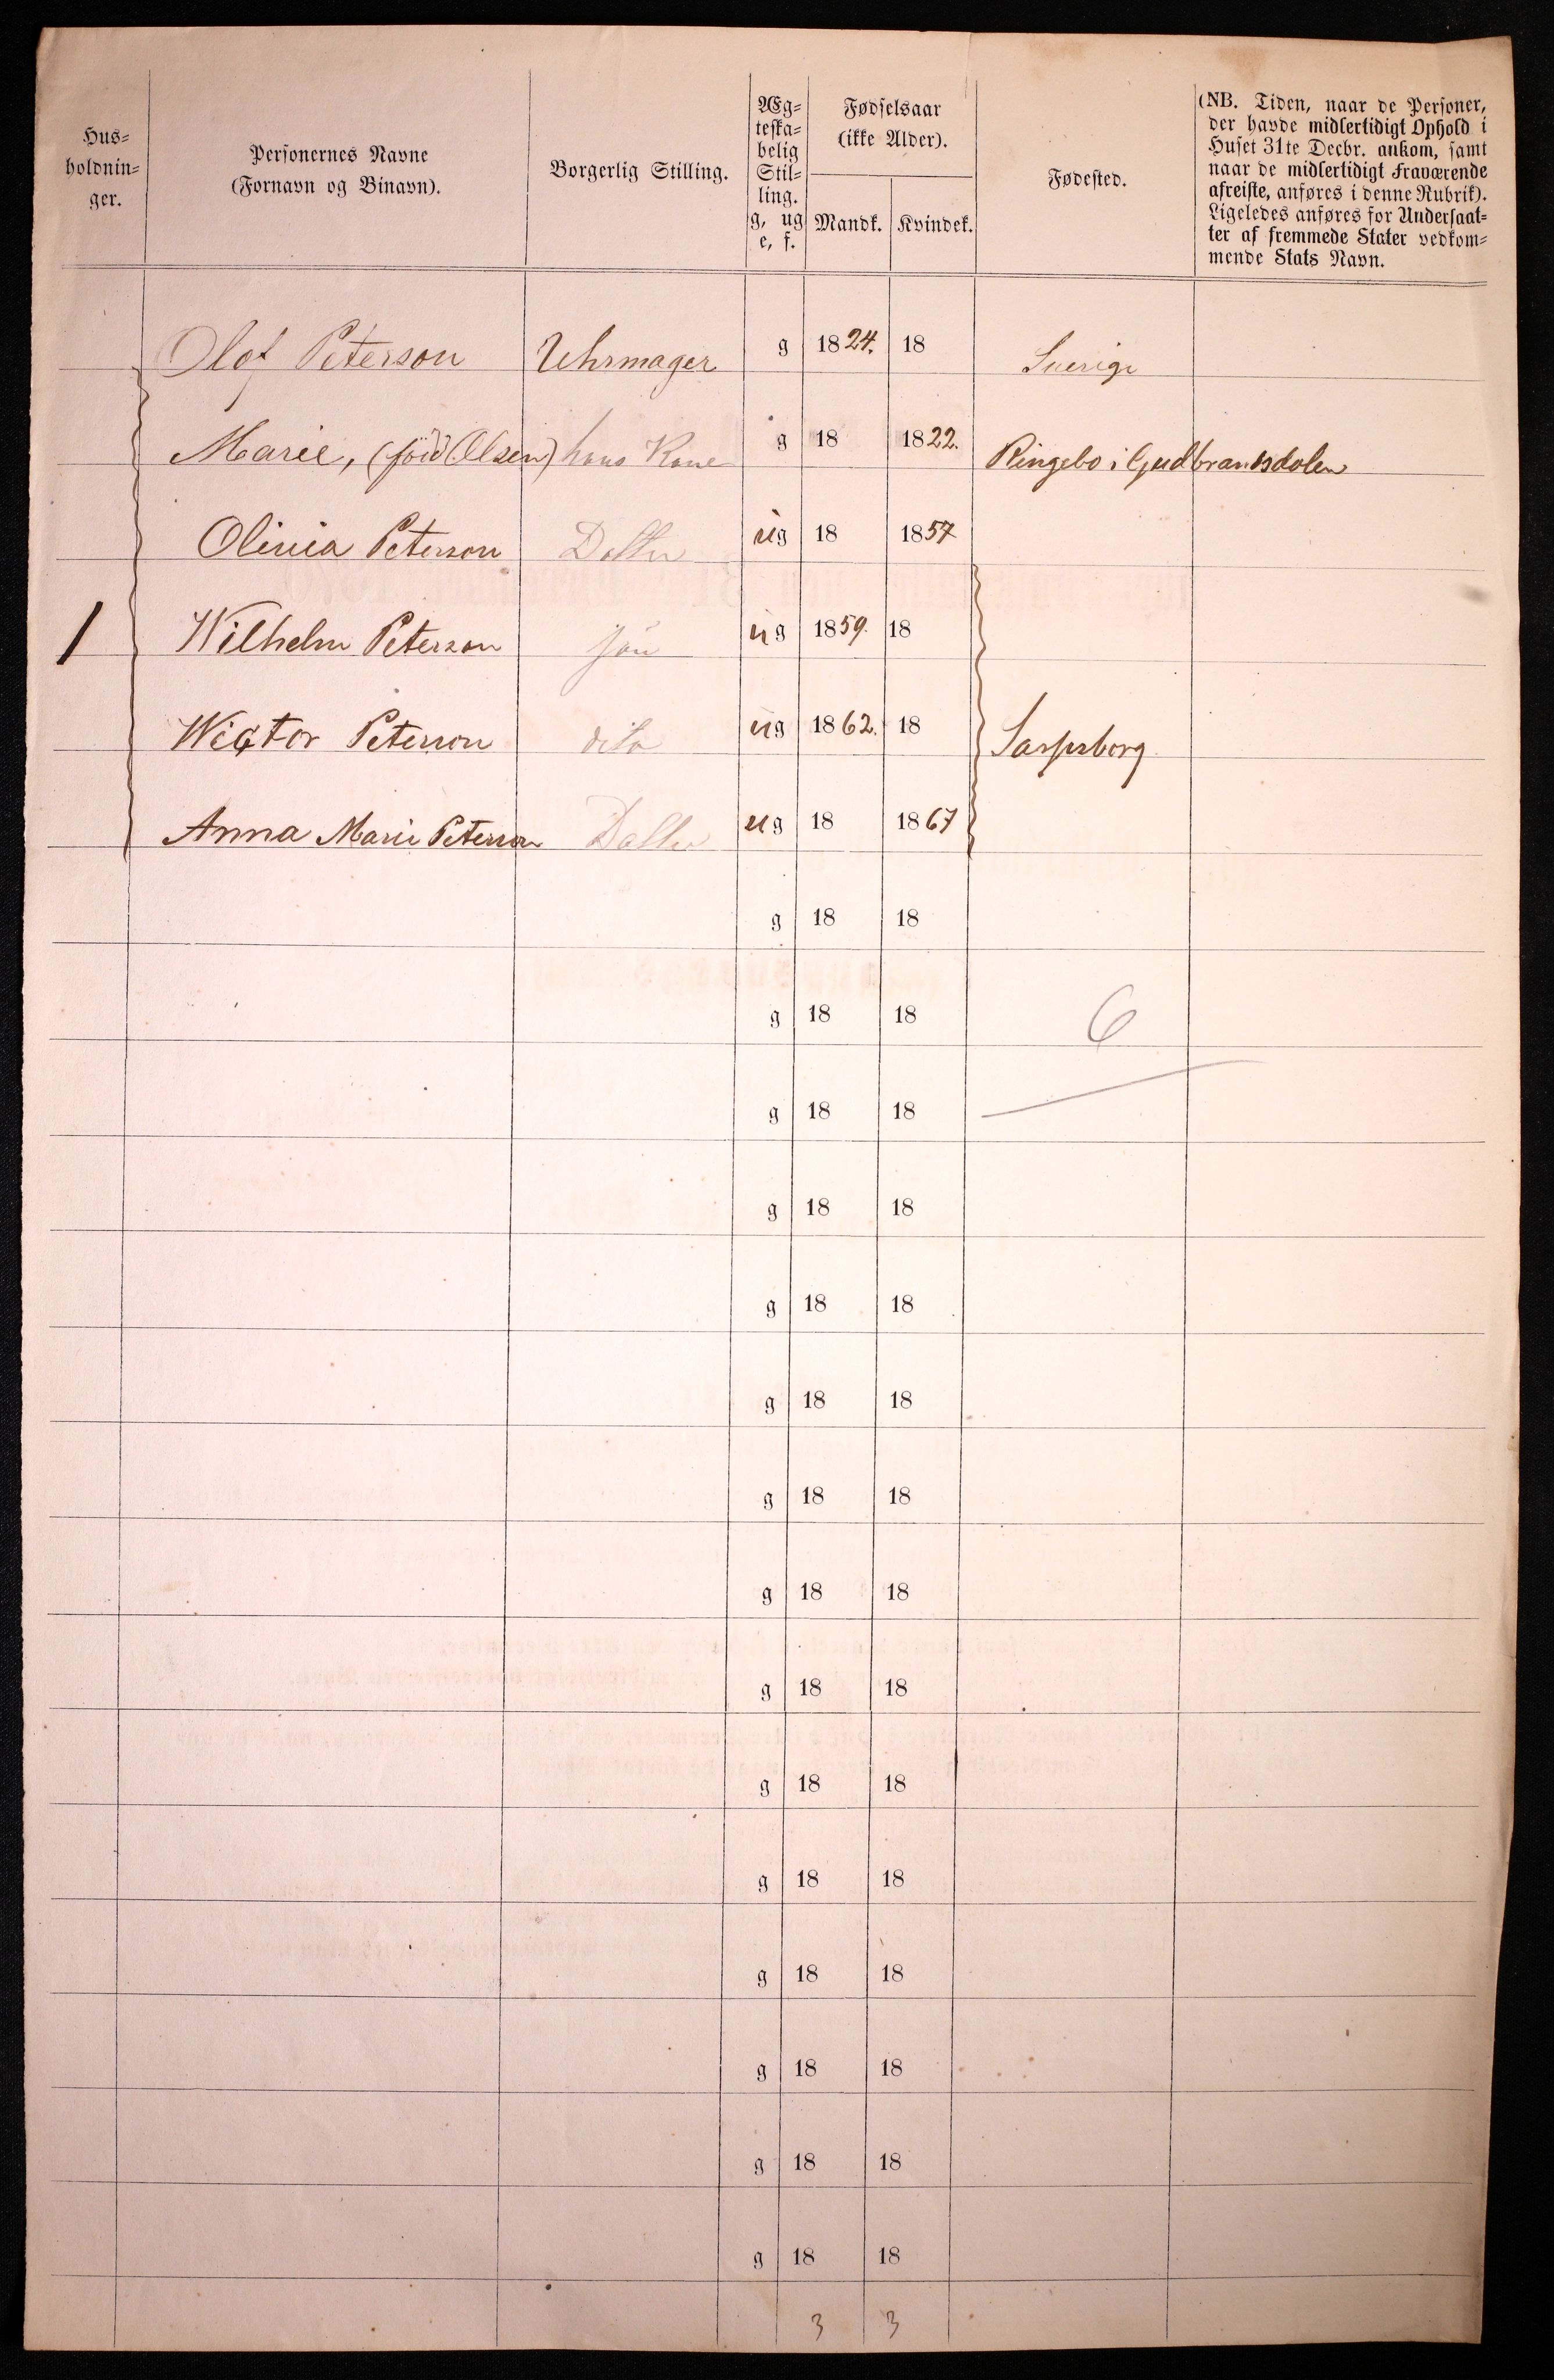 Hus-
holdnin-
ger.
Personernes Navne
(Fornavn og Binavn).
Borgerlig Stilling.
Æg-
teska-
belig
Stil-
ling.
g, ug
e, f.
Fødselsaar
(ikke Alder).
Mandk. Kvindek.
Fødested.
(NB. Tiden, naar de Personer,
der havde midlertidigt Ophold i
Huset 31te Decbr. ankom, samt
naar de midlertidigt Fraværende
afreiste, anføres i denne Rubrik).
Ligeledes anføres for Undersaat-
ter af fremmede Stater vedkom-
mende Stats Navn.
Olof Peterson Uhrmager g 1824. 18 Sverige
Marie, (född Olsen) hans Kone g 18 1822. Ringebo i Gudbrandsdalen
Olivia Peterson Datter ug 18 1857
1 Wilhelm Peterson Søn ug 1859. 18
Wictor Peterson dito ug 1862. 18 Sarpsborg
Anna Marie Peterson Datter ug 18 1867
g 18 18
g 18 18 6
g 18 18
g 18 18
g 18 18
g 18 18
g 18 18
g 18 18
g 18 18
g 18 18
g 18 18
g 18 18
g 18 18
g 18 18
g 18 18
3 3